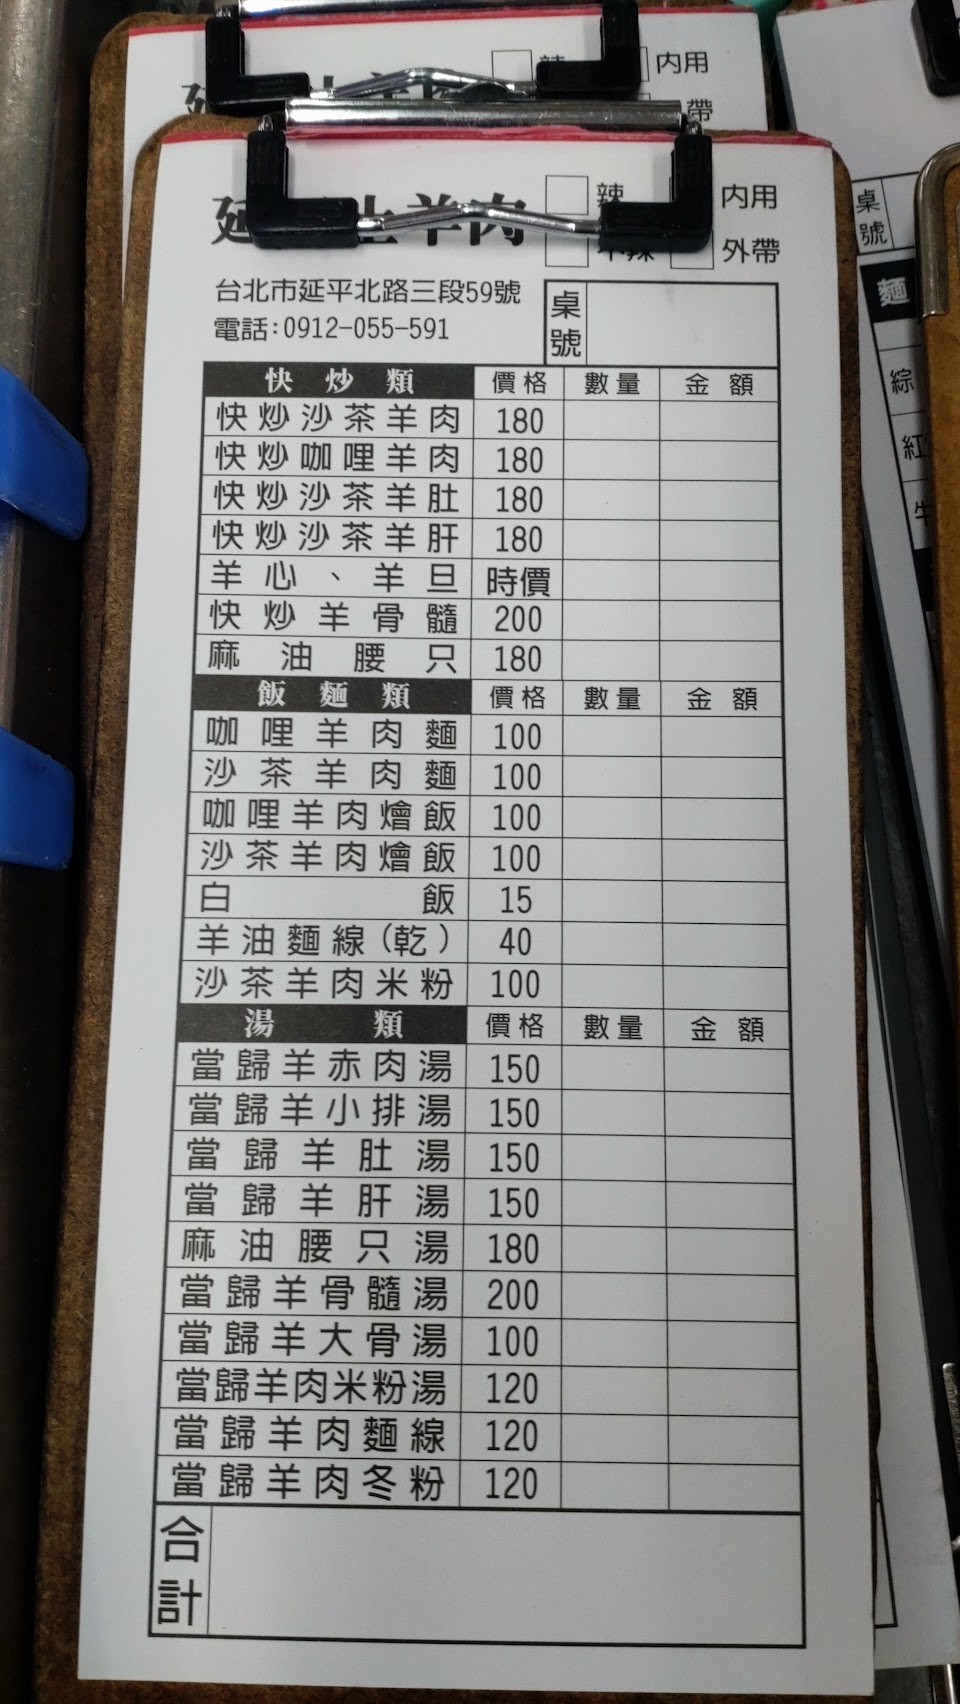 辣
内用
帶
延 土羊肉
辣
内用
不辣
外帶
台北市延平北路三段59號
電話:0912-055-591
桌號
快炒類 價格 數量 金額
快炒沙茶羊肉 180
快炒咖哩羊肉 180
快炒沙茶羊肚 180
快炒沙茶羊肝 180
羊心、羊旦 時價
快炒羊骨髓 200
麻油腰只 180
飯麵類 價格 數量 金額
咖哩羊肉麵 100
沙茶羊肉麵 100
咖哩羊肉燴飯 100
沙茶羊肉燴飯 100
白飯 15
羊油麵線(乾) 40
沙茶羊肉米粉 100
湯類 價格 數量 金額
當歸羊赤肉湯 150
當歸羊小排湯 150
當歸羊肚湯 150
當歸羊肝湯 150
麻油腰只湯 180
當歸羊骨髓湯 200
當歸羊大骨湯 100
當歸羊肉米粉湯 120
當歸羊肉麵線 120
當歸羊肉冬粉 120
合計
桌號
麵
綜
紅
牛